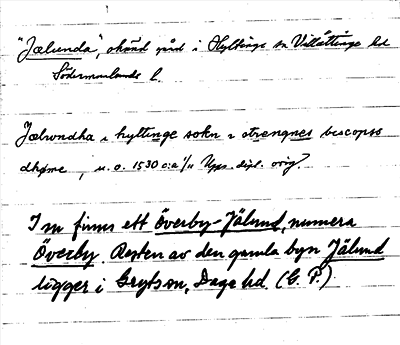 "Jælunda", okänd gård i Hyltinge sn Villåttinge hd
Södermanlands l.
Jælwndha i hyltinge sokn i strengnes bescopss
døme, u.o. 1530 c:a 1/11 Upps. dipl. orig.
I sn finns ett Överby-Jälund, numera
Överby. Resten av den gamla byn Jälund
ligger i Grytsn, Daga hd. (G. F.)